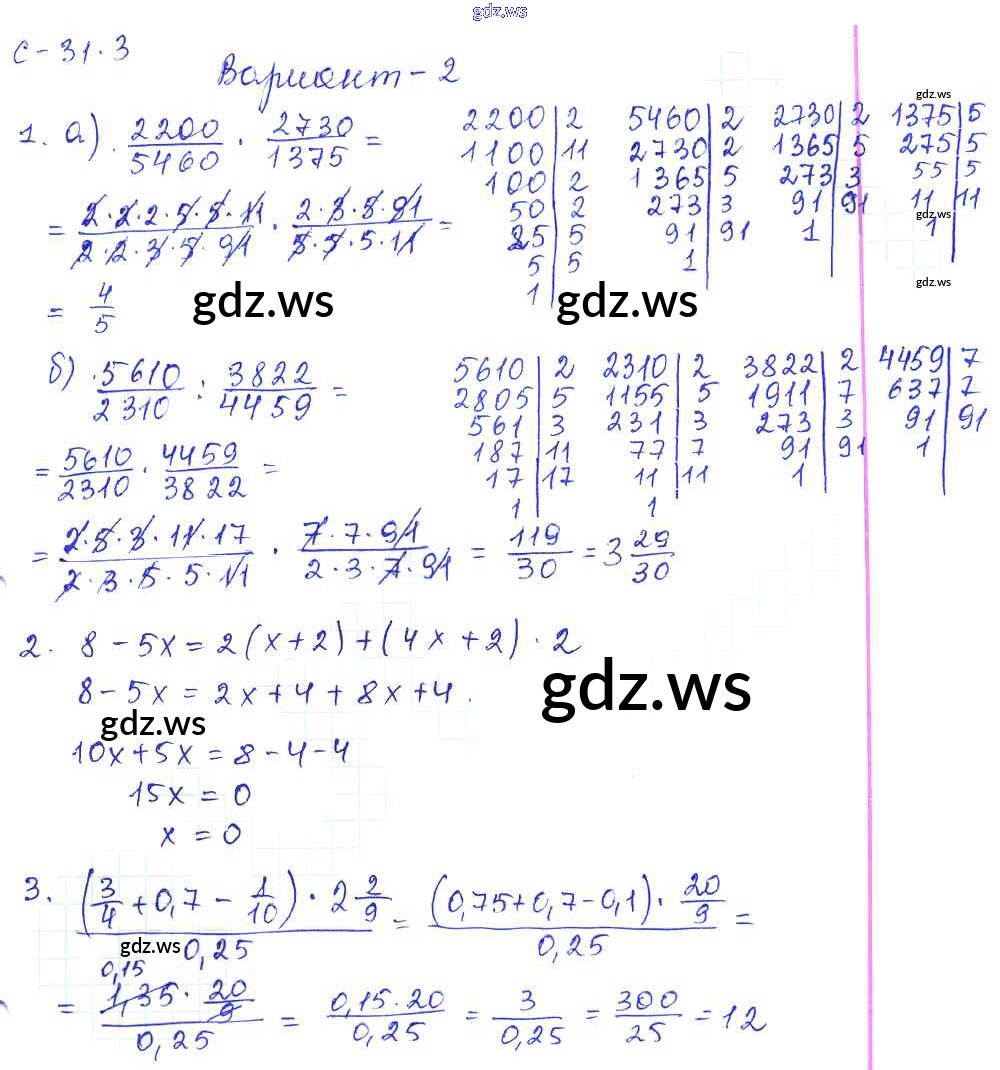 gdz.ws
С-31.3
Вариант-2
1. а) 2200/5460 · 2730/1375 =
= 2·2·2·5·5·11/2·2·3·5·91 · 2·3·5·91/5·5·5·11 =
= 4/5
2200 | 2
1100 | 11
100 | 2
50 | 2
25 | 5
5 | 5
1
5460 | 2
2730 | 2
1365 | 5
273 | 3
91 | 91
1
2730 | 2
1365 | 5
273 | 3
91 | 91
1
1375 | 5
275 | 5
55 | 5
11 | 11
1
gdz.ws
gdz.ws
gdz.ws
gdz.ws
gdz.ws
б) 5610/2310 : 3822/4459 =
= 5610/2310 · 4459/3822 =
= 2·5·3·11·17/2·3·5·5·11 · 7·7·91/2·3·7·91 = 119/30 = 3 29/30
5610 | 2
2805 | 5
561 | 3
187 | 11
17 | 17
1
2310 | 2
1155 | 5
231 | 3
77 | 7
11 | 11
1
3822 | 2
1911 | 7
273 | 3
91 | 91
1
4459 | 7
637 | 7
91 | 91
1
2. 8 - 5x = 2(x+2)+(4x+2)·2
8 - 5x = 2x+4+8x+4.
gdz.ws
gdz.ws
10x+5x = 8-4-4
15x = 0
x = 0
3. (3/4 + 0,7 - 1/10) · 2 2/9 / 0,25 = (0,75+0,7-0,1) · 20/9 / 0,25 =
gdz.ws
0,15
= 1,35 · 20/9 / 0,25 = 0,15·20/0,25 = 3/0,25 = 300/25 = 12